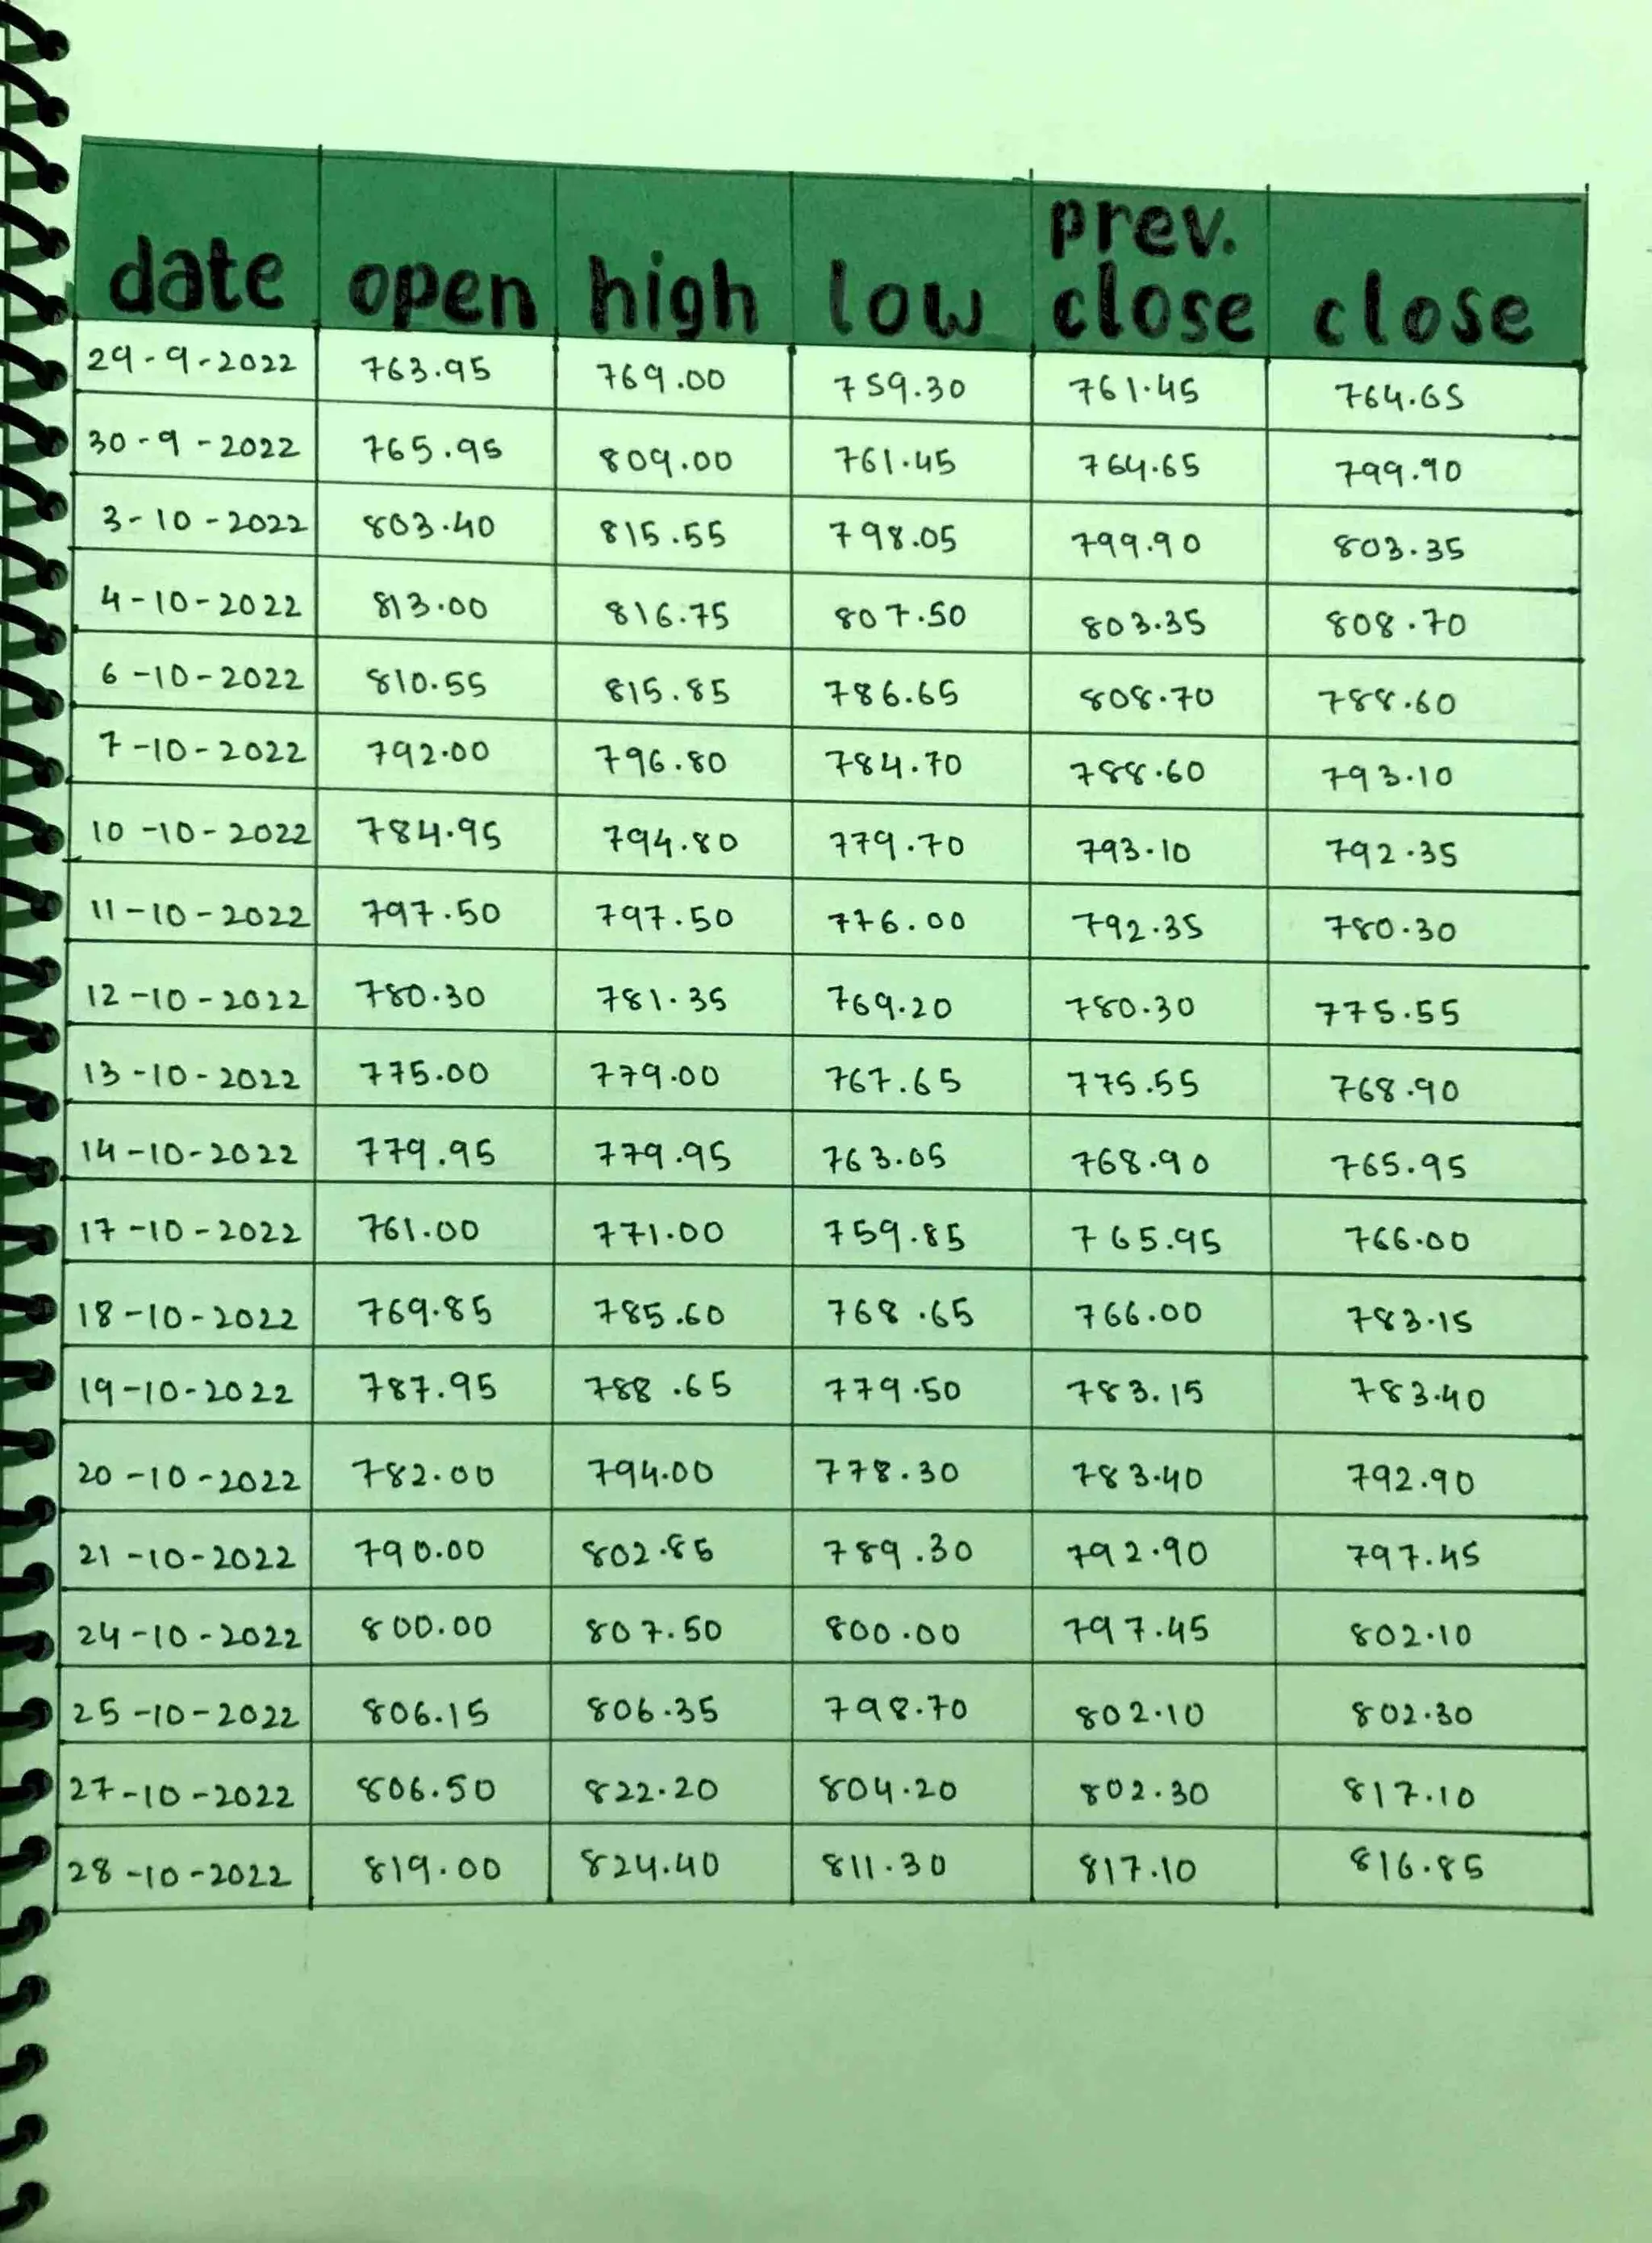 date open high low prev. close close
29-9-2022 763.95 769.00 759.30 761.45 764.65
30-9-2022 765.95 809.00 761.45 764.65 799.90
3-10-2022 803.40 815.55 798.05 799.90 803.35
4-10-2022 813.00 816.75 807.50 803.35 808.70
6-10-2022 810.55 815.85 786.65 808.70 788.60
7-10-2022 792.00 796.80 784.70 788.60 793.10
10-10-2022 784.95 794.80 779.70 793.10 792.35
11-10-2022 797.50 797.50 776.00 792.35 780.30
12-10-2022 780.30 781.35 769.20 780.30 775.55
13-10-2022 775.00 779.00 767.65 775.55 768.90
14-10-2022 779.95 779.95 763.05 768.90 765.95
17-10-2022 761.00 771.00 759.85 765.95 766.00
18-10-2022 769.85 785.60 768.65 766.00 783.15
19-10-2022 787.95 788.65 779.50 783.15 783.40
20-10-2022 782.00 794.00 778.30 783.40 792.90
21-10-2022 790.00 802.85 789.30 792.90 797.45
24-10-2022 800.00 807.50 800.00 797.45 802.10
25-10-2022 806.15 806.35 798.70 802.10 802.30
27-10-2022 806.50 822.20 804.20 802.30 817.10
28-10-2022 819.00 824.40 811.30 817.10 816.85